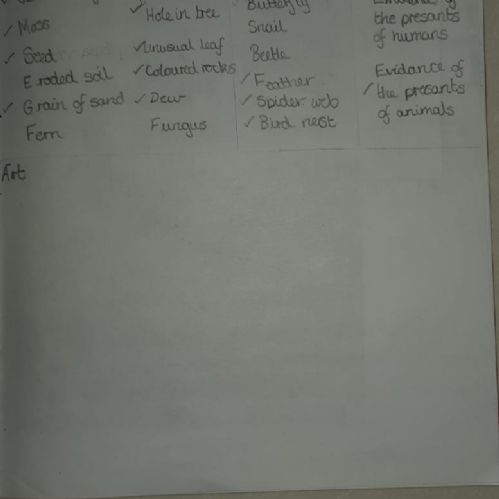 ✓ Moss
✓ Seed
Eroded soil
✓ Grain of sand
Fern
✓ Hole in tree
✓ unusual leaf
✓ Coloured rocks
✓ Dew
Fungus
Butterfly
Snail
Beetle
✓ Feather
✓ Spider web
✓ Bird nest
the presants
of humans
Evidance of
✓ the presants
of animals
Art